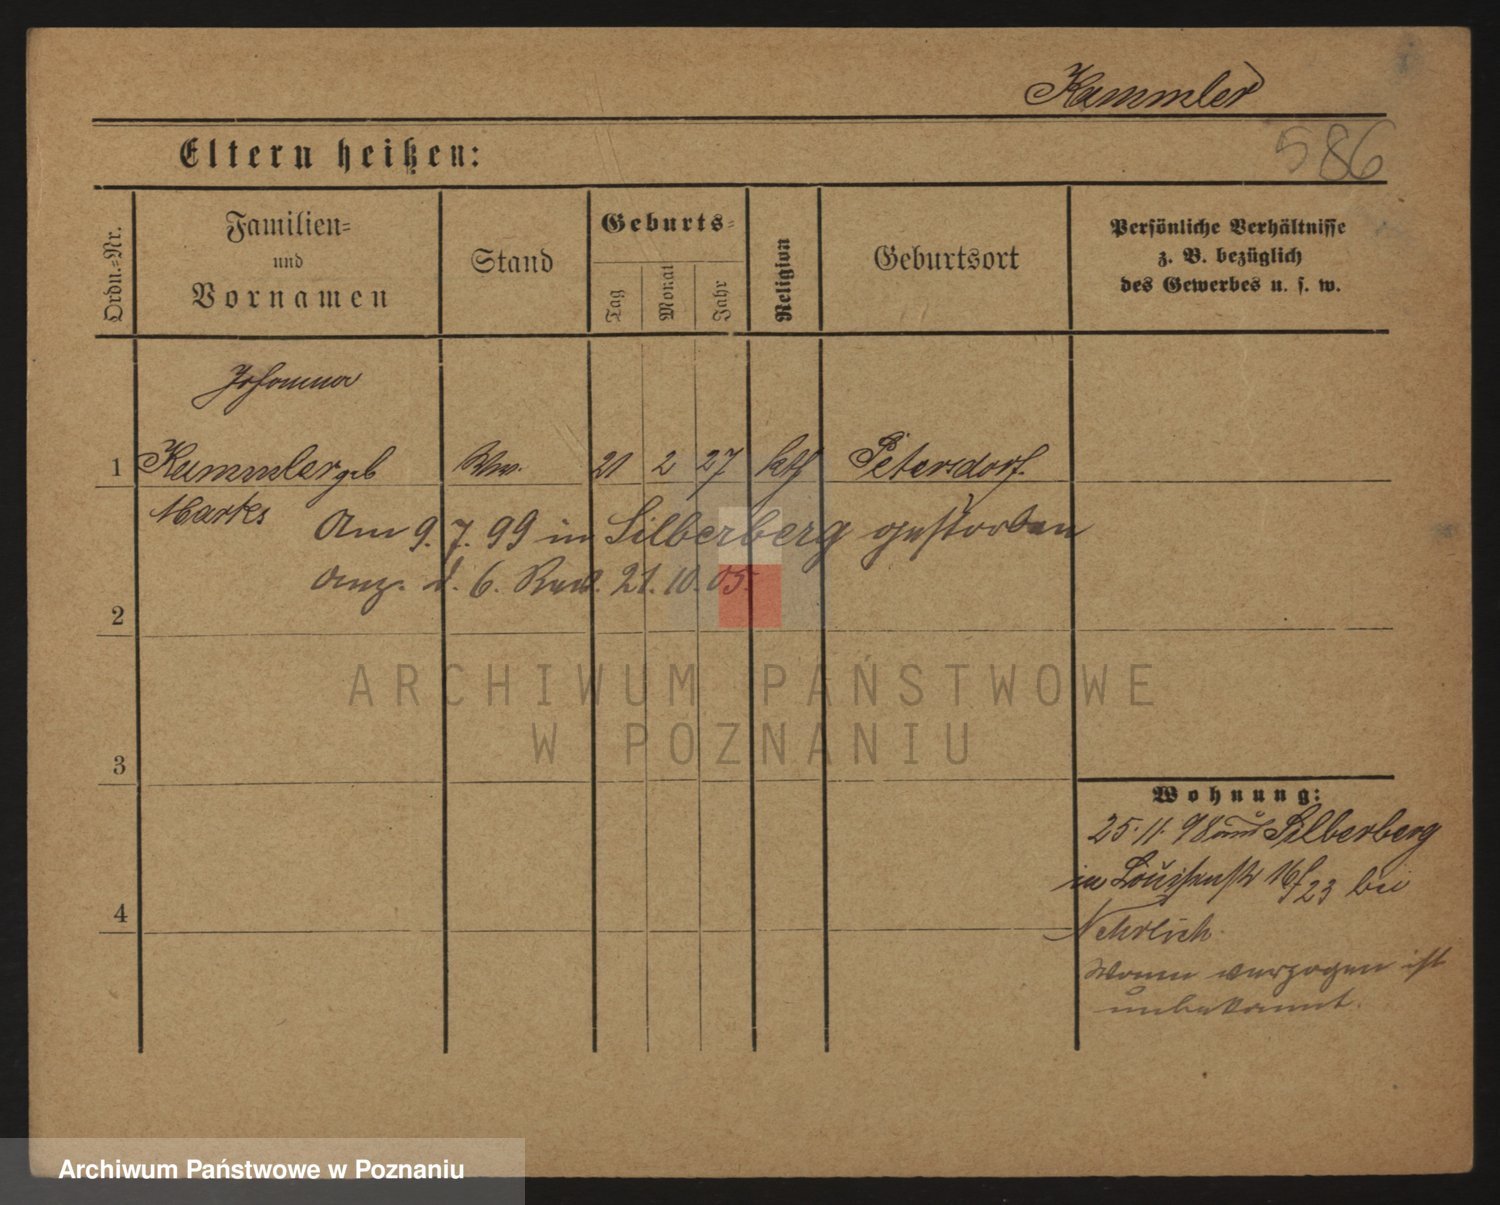 Kammler
586
Eltern heißen:
Ordn.-Nr.
Familien-
und
Vornamen
Stand
Geburts-
Tag
Monat
Jahr
Religion
Geburtsort
Persönliche Verhältnisse
z. B. bezüglich
des Gewerbes u. s. w.
Johanna
1 Kammler geb Ww. 21 2 27 kth Petersdorf.
Marks
Am 9. 7. 99 in Silberberg gestorben
Anz. d. 6. Rev. 21. 10. 05.
2
ARCHIWUM PAŃSTWOWE
W POZNANIU
3
Wohnung:
25. 11. 98 aus Silberberg
in Louisenstr 16/23 bei
4
Nehrlich.
Wann verzogen ist
unbekannt.
Archiwum Państwowe w Poznaniu